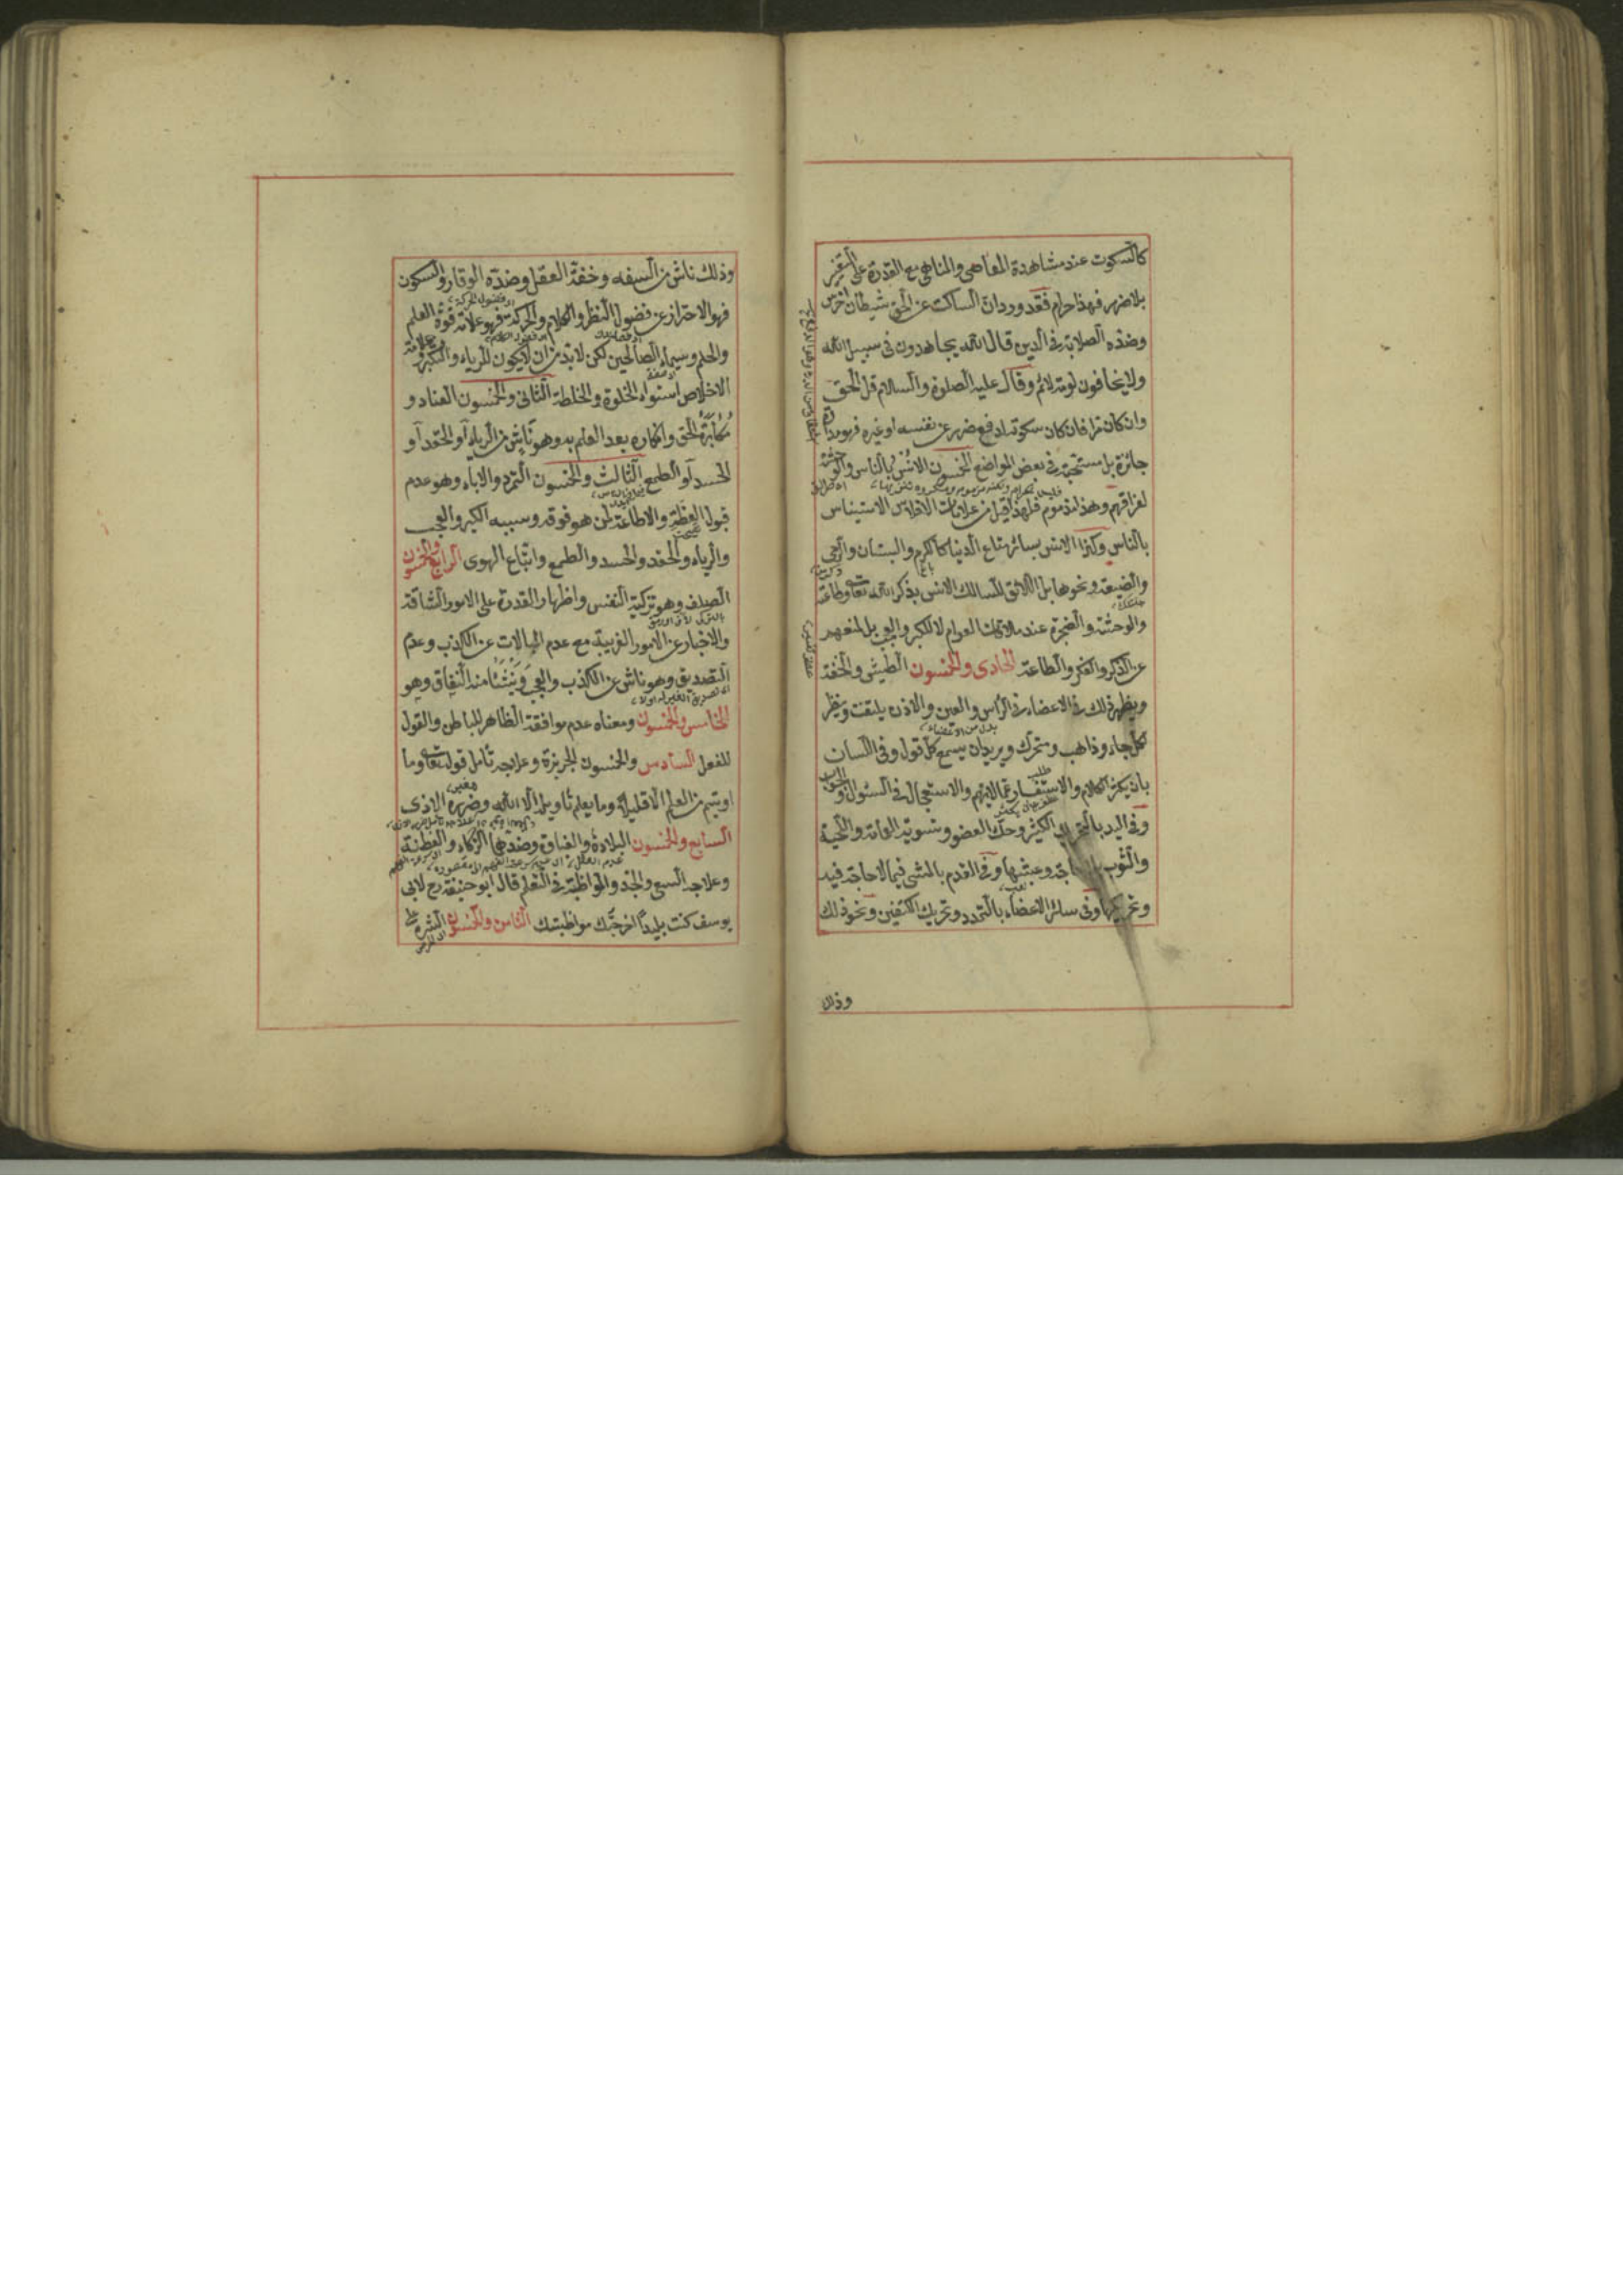 كالسكوت عند مشاهدة المعاصى والمناهى مع القدرة على التغيير
بلا ضرر فهذا حرام فقد ورد ان الساكت عن الحق شيطان اخرس
وضده الصلابة فى الدين قال الله يجاهدون فى سبيل الله
ولا يخافون لومة لائم وقال عليه الصلوة والسلام قل الحق
وان كان مرا فان كان سكوته لدفع ضرر عن نفسه او غيره فهو مداراة
جائزة بل مستحبة فى بعض المواضع الخمسون الانس بالناس والوحشة
لفراقهم وهذا مذموم فلهذا قيل من علامات الافلاس الاستيناس
بالناس وكذا الانس بسائر متاع الدنيا كالكرم والبستان والرحى
والضيعة ونحوها بل اللائق للسالك الانس بذكر الله تعا وطاعته
والوحشة والضجرة عند ملاقات العوام لا للكبر والعجب بل لمنعهم
عن الذكر والفكر والطاعة الحادى والخمسون الطيش والخفة
ويظهر ذلك فى الاعضاء فى الرأس والعين والاذن يلتفت وينظر
لكل جاء وذاهب ومتحرك ويريد ان يسمع كل قول وفى اللسان
بان يكثر الكلام والاستفسار عما لا يهم والاستعجال فى السئوال والجواب
وفى اليد بالتحريك الكثير وحك العضو وتسوية العمامة واللحية
والثوب بلا حاجة وعبثها وفى القدم بالمشى فيما لا حاجة فيه
وتحريكها وفى سائر الاعضاء بالتمدد وتحريك الكتفين ونحو ذلك
وذلك
وذلك ناش من السفه وخفة العقل وضده الوقار والسكون
فهو الاحتراز عن فضول النظر والكلام والحركة فهو علامة قوة العلم
والحلم وسيماء الصالحين لكن لا بد من ان لا يكون للرياء والتكبر وعلامة
الاخلاص استواء الخلوة والخلطة الثانى والخمسون العناد و
مكابرة الحق وانكاره بعد العلم به وهو ناش من الرياء او الحقد او
الحسد او الطمع الثالث والخمسون التمرد والاباء وهو عدم
قبول العظة والاطاعة لمن هو فوقه وسببه الكبر والعجب
والرياء والحقد والحسد والطمع واتباع الهوى الرابع والخمسون
الصلف وهو تزكية النفس واظهار القدرة على الامور الشاقة
والاخبار عن الامور الغريبة مع عدم المبالات عن الكذب وعدم
التصديق وهو ناش عن الكذب والعجب وينشئا منه النفاق وهو
الخامس والخمسون ومعناه عدم موافقة الظاهر للباطن والقول
للفعل السادس والخمسون الجربزة وعلاجه تأمل قوله تعا وما
اوتيتم من العلم الا قليلا وما يعلم تأويله الا الله وضرره الاذى
السابع والخمسون البلادة والغباوة وضدها الذكاء والفطنة
وعلاجه السعى والجد والمواظبة فى التعلم قال ابو حنيفة رح لابى
يوسف كنت بليدا اخرجتك مواظبتك الثامن والخمسون الشره